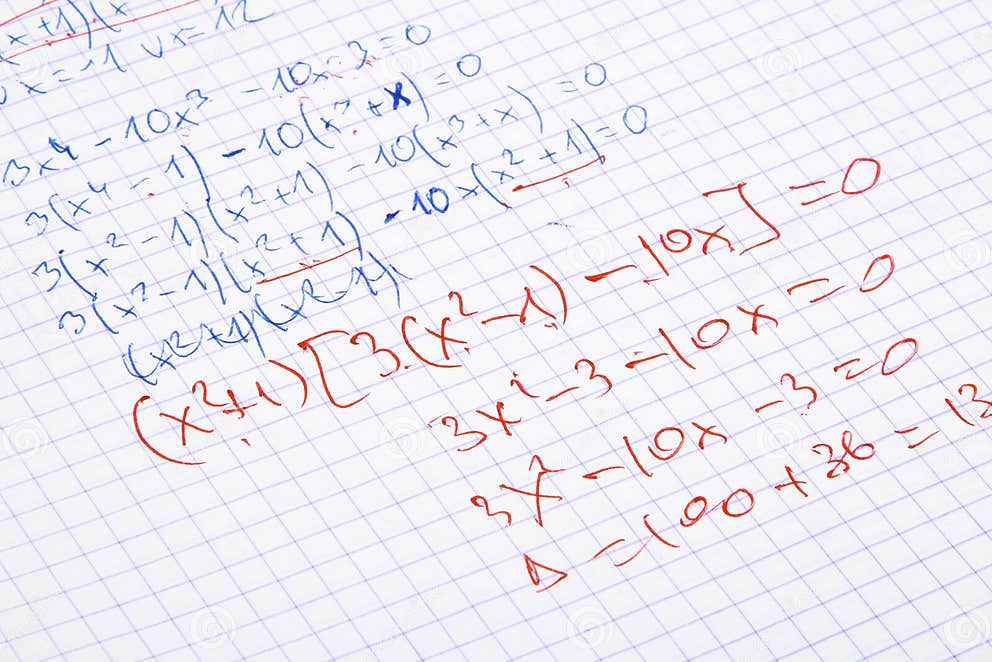 (x+1)(x
x = -1 ∨ x = 12
3x⁴ - 10x³ - 10x - 3 = 0
3(x⁴ - 1) - 10(x³ + x) = 0
3(x² - 1)(x² + 1) - 10(x³ + x) = 0
3(x² - 1)(x² + 1) - 10x(x² + 1) = 0
(x² + 1)(x² - 1)
(x² + 1)[3(x² - 1) - 10x] = 0
3x² - 3 - 10x = 0
3x² - 10x - 3 = 0
Δ = 100 + 36 = 13